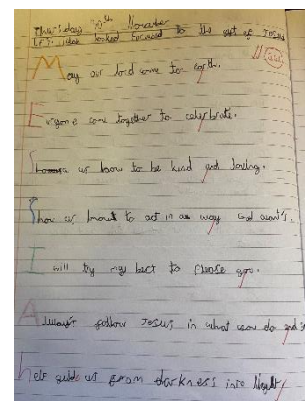 Thursday 30th November
to the of Jesus
May our lord come to earth.
Everyone come together to celebrate.
us how to be kind and loving.
Show us to act in a way God wants.
I will try my best to please you.
Always follow Jesus in what you do and
Help guide us from darkness into light